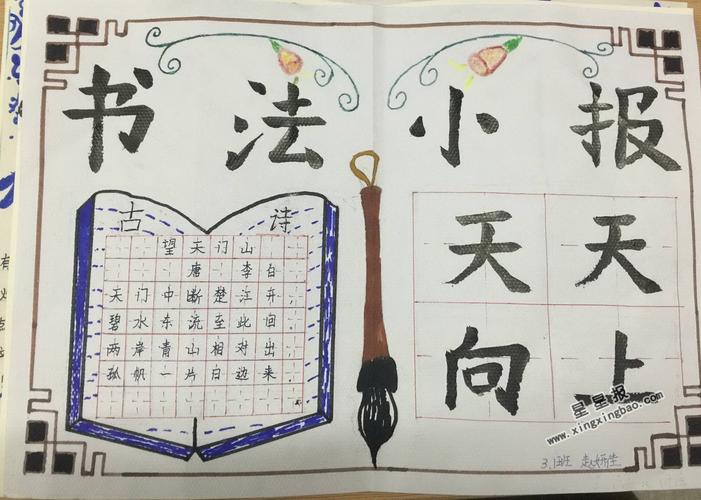 书法小报
古诗
望天门山
唐 李白
天门中断楚江开,
碧水东流至此回.
两岸青山相对出,
孤帆一片日边来.
天天
向上
星星报
www.xingxingbao.com
3.1班